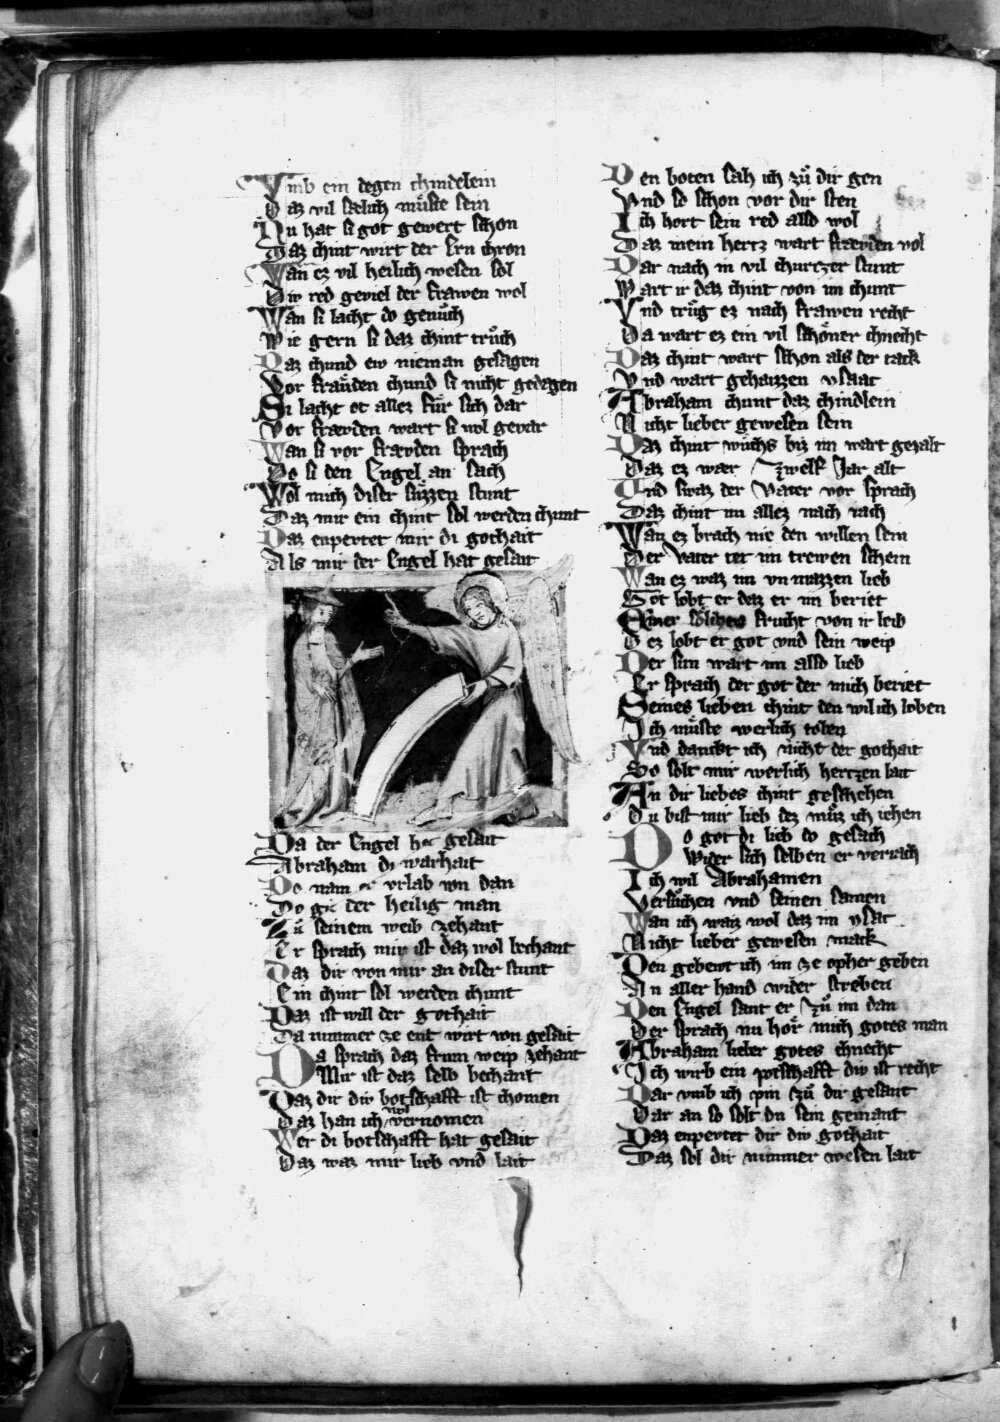 Vmb ein degen chindelein
Daz vil sælich müste sein
Nu hat si got gewert schon
Daz chint wirt der ern chron
Wan ez vil heilich wesen sol
Div red geviel der frawen wol
Wan si lacht do genůch
Wie gern si daz chint trůch
Daz chund ew nieman gesagen
Vor fräuden chund si nicht gedagen
Si lacht ot allez für sich dar
Vor fræuden wart si wol gevar
Wan si vor fræuden sprach
Do si den Engel an sach
Wol mich diser süzzen stunt
Daz mir ein chint sol werden chunt
Daz enpevtet mir di gothait
Als mir der Engel hat gesait
Da der Engel het gesait
Abraham di warhait
Do nam er vrlab von dan
Do gie der heilig man
Zů seinem weib zehant
Er sprach mir ist daz wol bechant
Daz dir von mir an diser stunt
Ein chint sol werden chunt
Daz ist will der gothait
Da nimmer ze ent wirt von gesait
Da sprach daz frum weip zehant
Mir ist daz selb bechant
Daz dir div botschafft ist chomen
Daz han ich wol vernomen
Wer di botschafft hat gesait
Daz waz mir lieb vnd lait
Den boten sah ich zů dir gen
Vnd so schon vor dir sten
Ich hort sein red alsd wol
Daz mein hertz wart fræuden vol
Dar nach in vil churtzer stunt
Wart ir daz chint von im chunt
Vnd trůg ez nach frawen recht
Da wart ez ein vil schöner chnecht
Daz chint wart schon als der tack
Vnd wart gehaizzen ysaac
Abraham chunt daz chindlein
Nicht lieber gewesen sein
Daz chint wuchs biz im wart gezalt
Daz ez wær zwelf Jar alt
Vnd swaz der Vater vor sprach
Daz chint im allez nach iach
Wan ez brach nie den willen sein
Der Vater tet im trewen schein
Wan ez waz im vnmazzen lieb
Got lobt er daz er im beriet
Einer solichen frucht von ir leib
Dez lobt er got vnd sein weip
Der sun wart im alsd lieb
Er sprach der got der mich beriet
Seines lieben chint den wil ich loben
Ich müste werlich toben
Vnd danckt ich nicht der gothait
So solt mir werlich hertzen lait
An dir liebes chint geschehen
Du bist mir lieb dez můz ich iehen
Do got di lieb do gesach
Wider sich selben er veriach
Ich wil Abrahamen
Versůchen vnd seinen samen
Wan ich waiz wol daz im ysac
Nicht lieber gewesen mack
Den gebewt ich im ze opher geben
An aller hand wider streben
Den Engel sant er zů im dan
Der sprach nu hör mich gotes man
Abraham lieber gotes chnecht
Ich wirb ein potschafft div ist recht
Dar vmb ich pin zů dir gesant
Dar an so solt du sein gemant
Daz enpevtet dir div gothait
Daz sol dir nimmer wesen lait